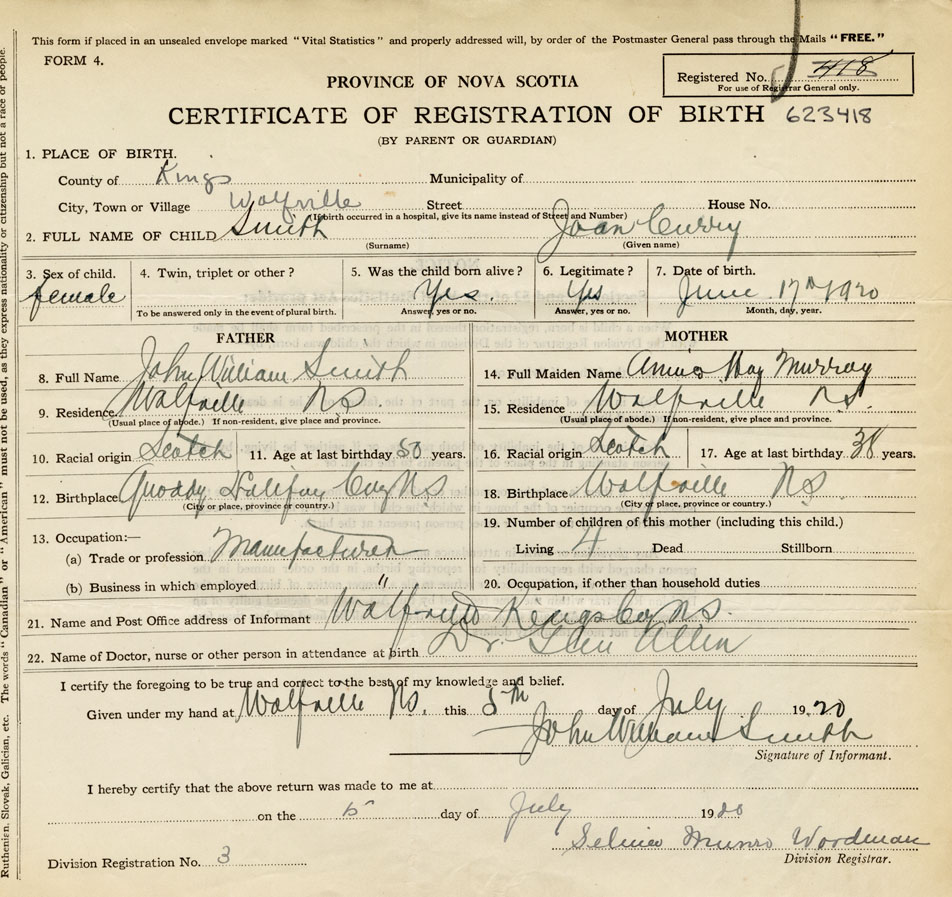 This form if placed in an unsealed envelope marked "Vital Statistics" and properly addressed will, by order of the Postmaster General pass through the Mails "FREE."
FORM 4.
PROVINCE OF NOVA SCOTIA
Registered No. 418
For use of Registrar General only.
CERTIFICATE OF REGISTRATION OF BIRTH 623418
(BY PARENT OR GUARDIAN)
1. PLACE OF BIRTH.
County of Kings Municipality of
City, Town or Village Wolfville Street House No.
(If birth occurred in a hospital, give its name instead of Street and Number)
2. FULL NAME OF CHILD Smith Joan Curry
(Surname) (Given name)
3. Sex of child. 4. Twin, triplet or other? 5. Was the child born alive? 6. Legitimate? 7. Date of birth.
female Yes. Yes June 17th 1920
To be answered only in the event of plural birth. Answer, yes or no. Answer, yes or no. Month, day, year.
FATHER MOTHER
8. Full Name John William Smith 14. Full Maiden Name Annie May Murray
9. Residence Wolfville N.S. 15. Residence Wolfville N.S.
(Usual place of abode.) If non-resident, give place and province. (Usual place of abode.) If non-resident, give place and province.
10. Racial origin Scotch 11. Age at last birthday 50 years. 16. Racial origin Scotch 17. Age at last birthday 38 years.
12. Birthplace Quoddy Halifax Coy NS 18. Birthplace Wolfville NS
(City or place, province or country.) (City or place, province or country.)
13. Occupation:— 19. Number of children of this mother (including this child.)
(a) Trade or profession Manufacturer Living 4 Dead Stillborn
(b) Business in which employed " 20. Occupation, if other than household duties
21. Name and Post Office address of Informant Wolfville Kings Coy NS.
22. Name of Doctor, nurse or other person in attendance at birth Dr. Allen
I certify the foregoing to be true and correct to the best of my knowledge and belief.
Given under my hand at Wolfville NS. this 5th day of July 1920
John William Smith
Signature of Informant.
I hereby certify that the above return was made to me at
on the 5 day of July 1920
Selina Munro Wordman
Division Registration No. 3 Division Registrar.
Ruthenian, Slovak, Galician, etc. The words "Canadian" or "American" must not be used, as they express nationality or citizenship but not a race or people.